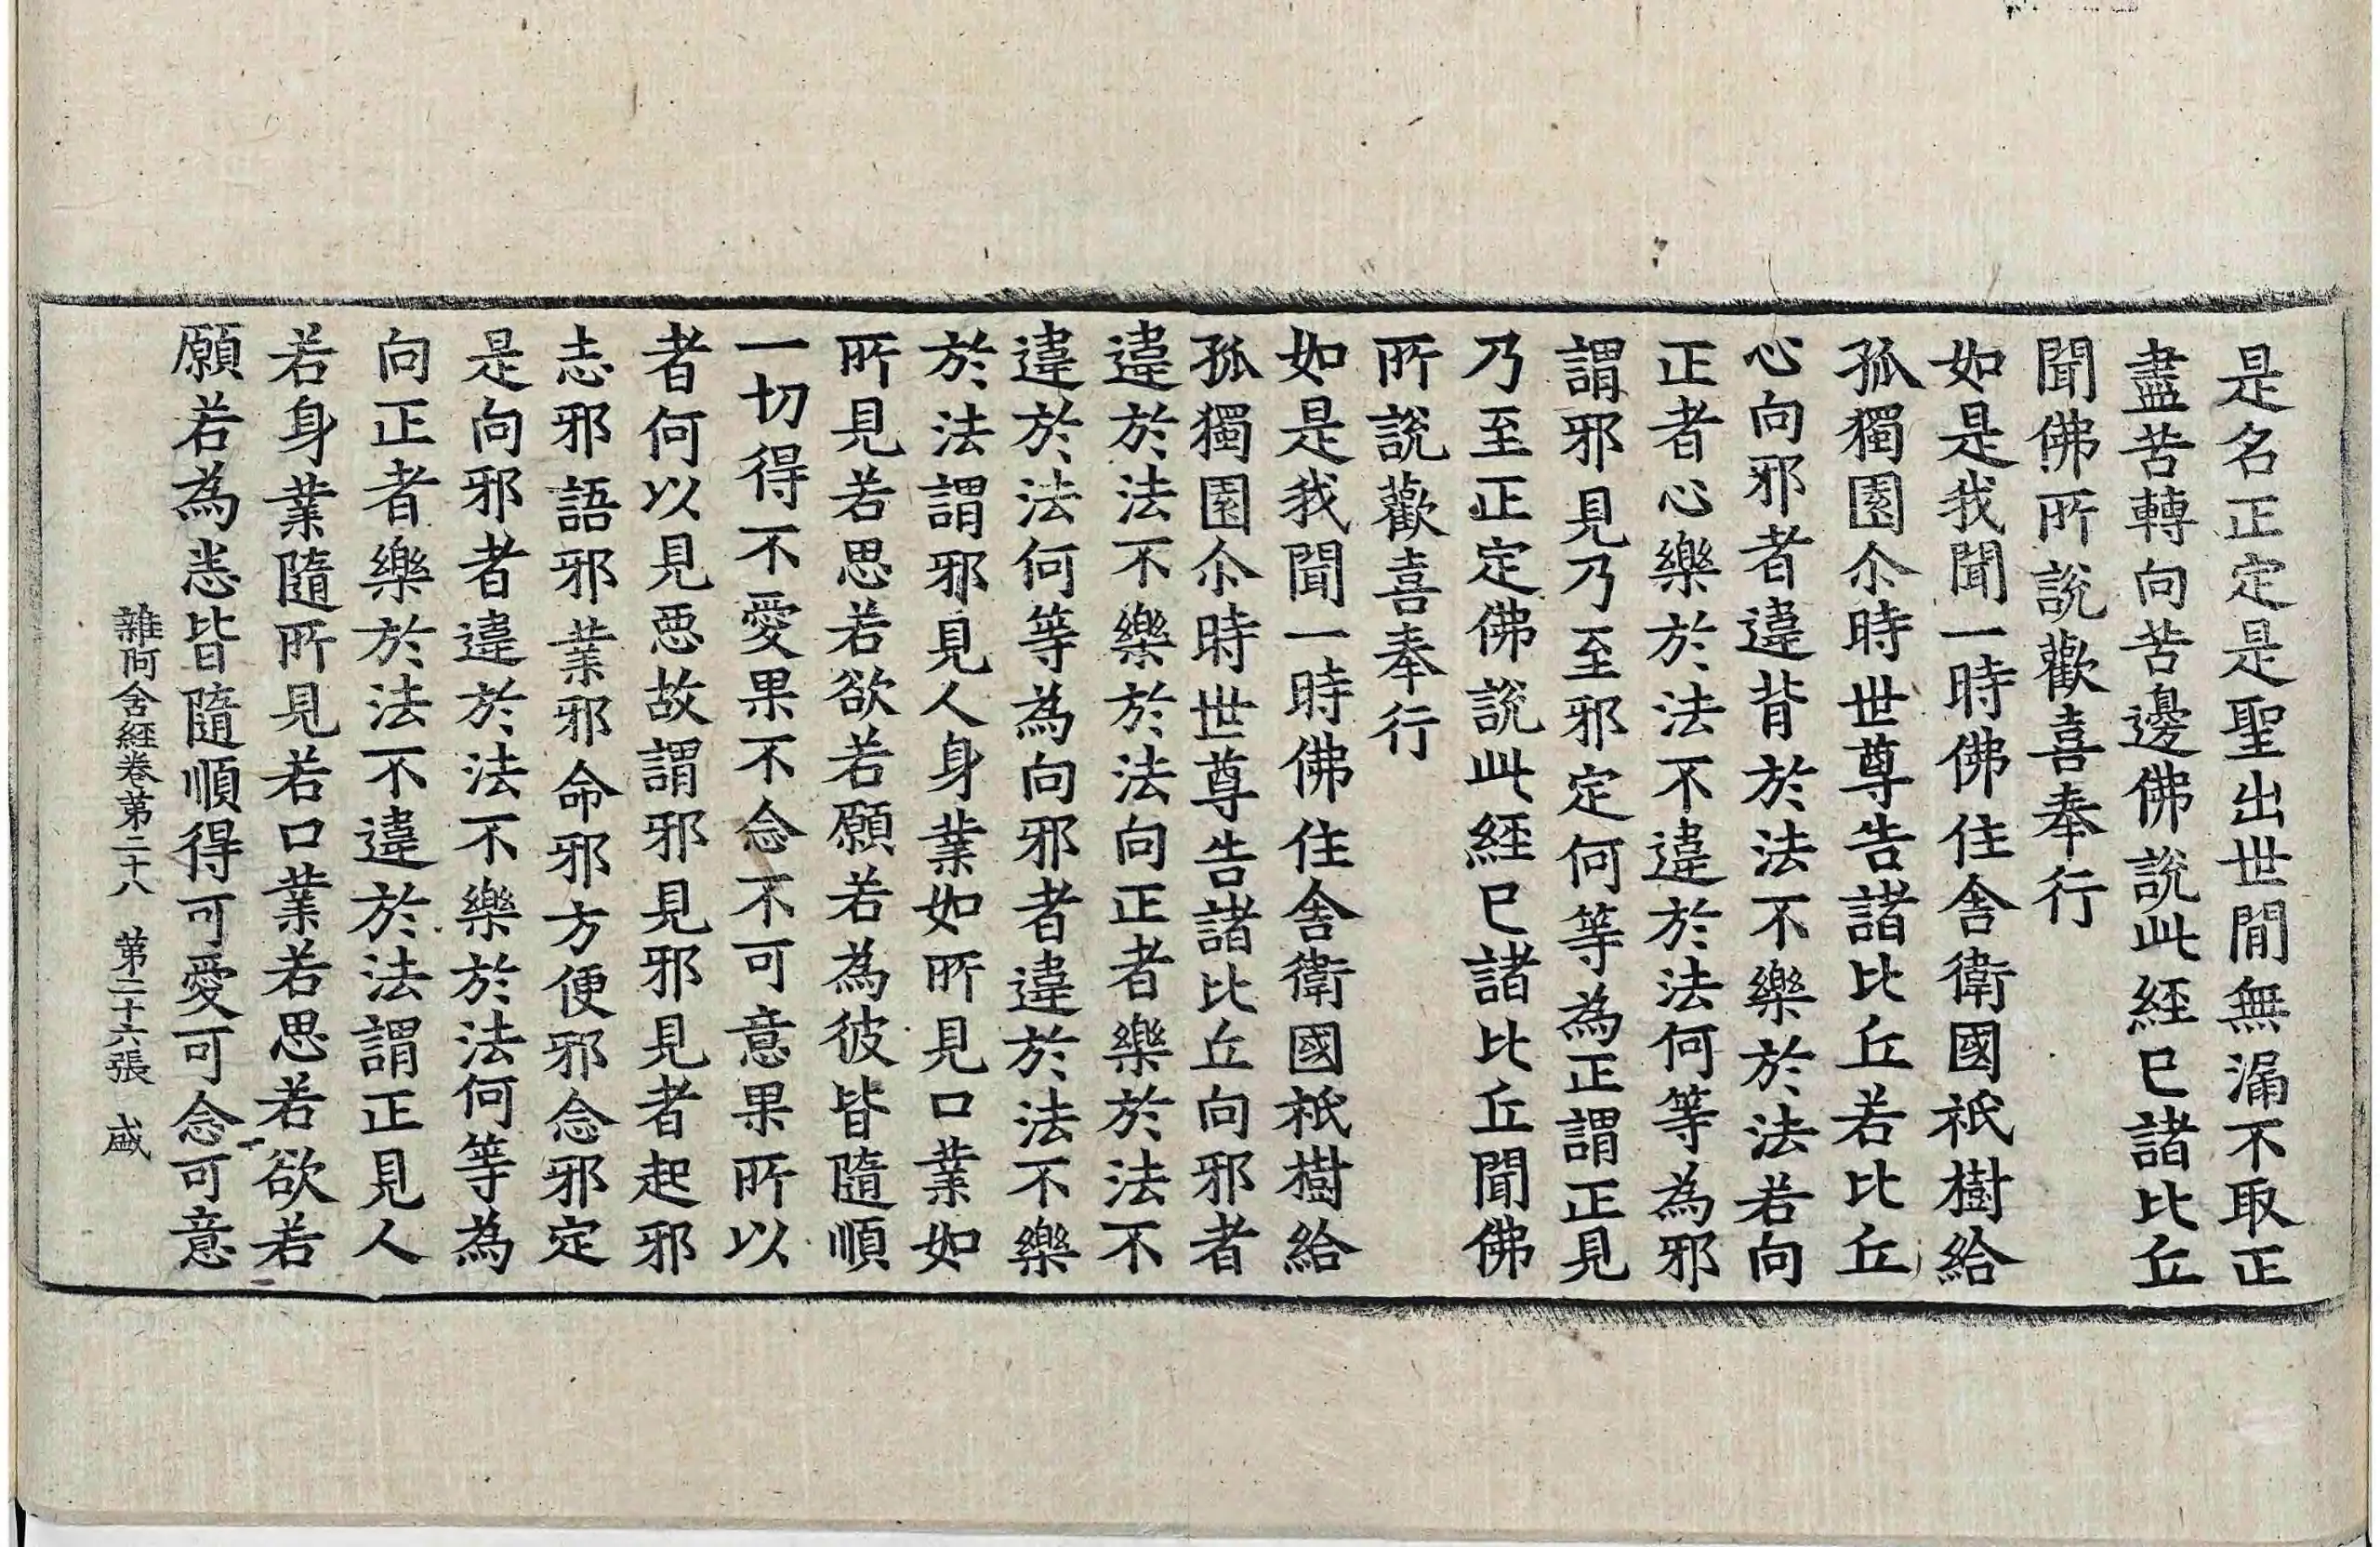 是名正定是聖出世閒無漏不取正
盡苦轉向苦邊佛說此經已諸比丘
聞佛所說歡喜奉行
如是我聞一時佛住舍衛國祇樹給
孤獨園尒時世尊告諸比丘若比丘
心向邪者違背於法不樂於法若向
正者心樂於法不違於法何等為邪
謂邪見乃至邪定何等為正謂正見
乃至正定佛說此經已諸比丘聞佛
所說歡喜奉行
如是我聞一時佛住舍衛國祇樹給
孤獨園尒時世尊告諸比丘向邪者
違於法不樂於法向正者樂於法不
違於法何等為向邪者違於法不樂
於法謂邪見人身業如所見口業如
所見若思若欲若願若為彼皆隨順
一切得不愛果不念不可意果所以
者何以見惡故謂邪見邪見者起邪
志邪語邪業邪命邪方便邪念邪定
是向邪者違於法不樂於法何等為
向正者樂於法不違於法謂正見人
若身業隨所見若口業若思若欲若
願若為悉皆隨順得可愛可念可意
雜阿含經卷第二十八 第二十六張 盛